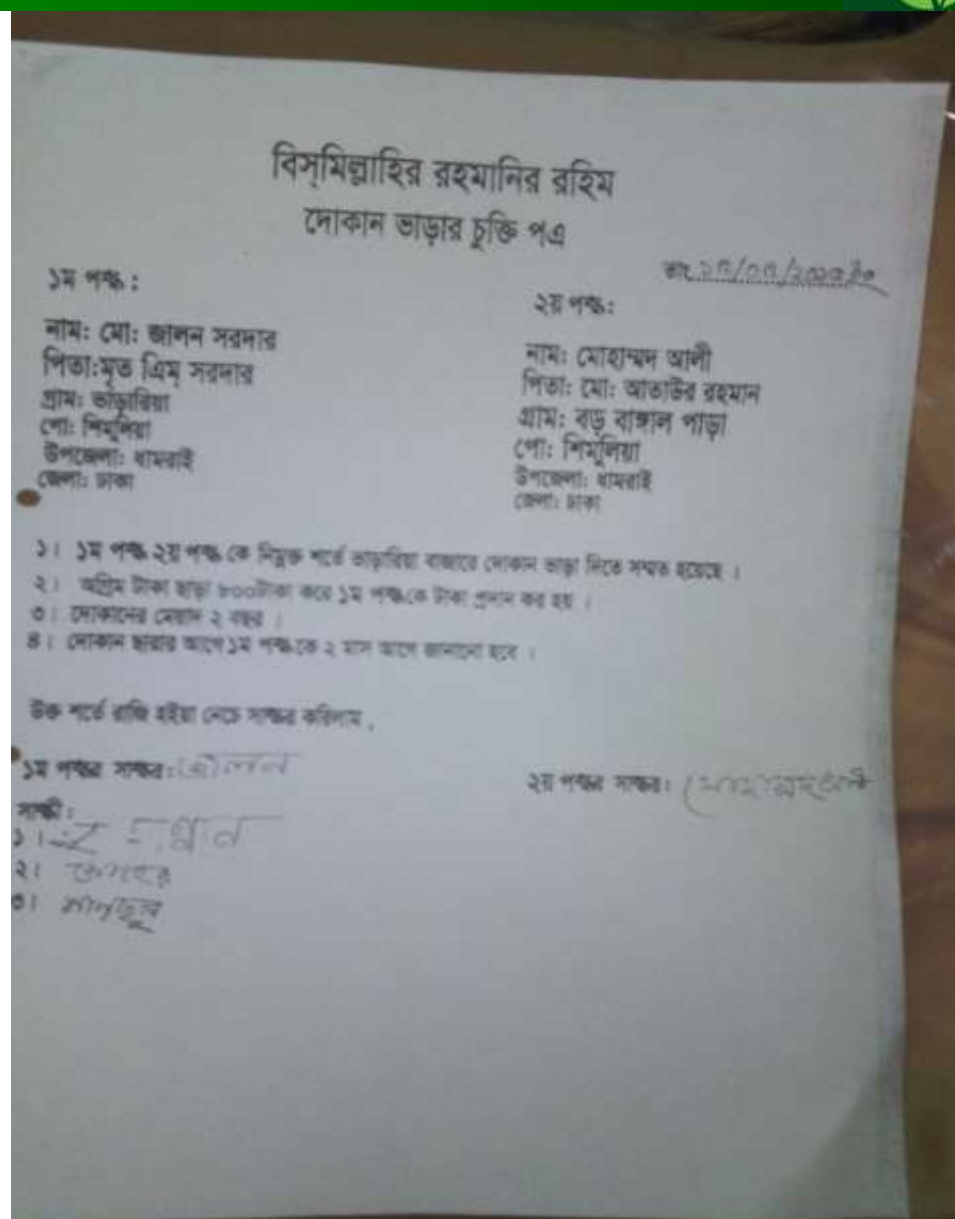 বিস্‌মিল্লাহির রহমানির রহিম
দোকান ভাড়ার চুক্তি পএ
তাং
১ম পক্ষ :
নাম: মো: জালন সরদার
পিতা:মৃত এিম্ সরদার
গ্রাম: ভাঁড়ারিয়া
পো: শিমুলিয়া
উপজেলা: ধামরাই
জেলা: ঢাকা
২য় পক্ষ:
নাম: মোহাম্মদ আলী
পিতা: মো: আতাউর রহমান
গ্রাম: বড় বাঙ্গাল পাড়া
পো: শিমুলিয়া
উপজেলা: ধামরাই
জেলা: ঢাকা
১। ১ম পক্ষ ২য় পক্ষ কে নিম্নুক্ত শর্তে ভাড়ারিয়া বাজারে দোকান ভাড়া দিতে সম্মত হয়েছে ।
২। অগ্রিম টাকা ছাড়া ৮০০টাকা করে ১ম পক্ষকে টাকা প্রদান কর হয় ।
৩। দোকানের মেয়াদ ২ বছর ।
৪। দোকান ছারার আগে ১ম পক্ষকে ২ মাস আগে জানানো হবে ।
উক্ত শর্তে রাজি হইয়া নেচে সাক্ষর করিলাম ,
১ম পক্ষর সাক্ষর: জালন
২য় পক্ষর সাক্ষর: মোহাম্মদ আলী
সাক্ষী :
১।
২।
৩।